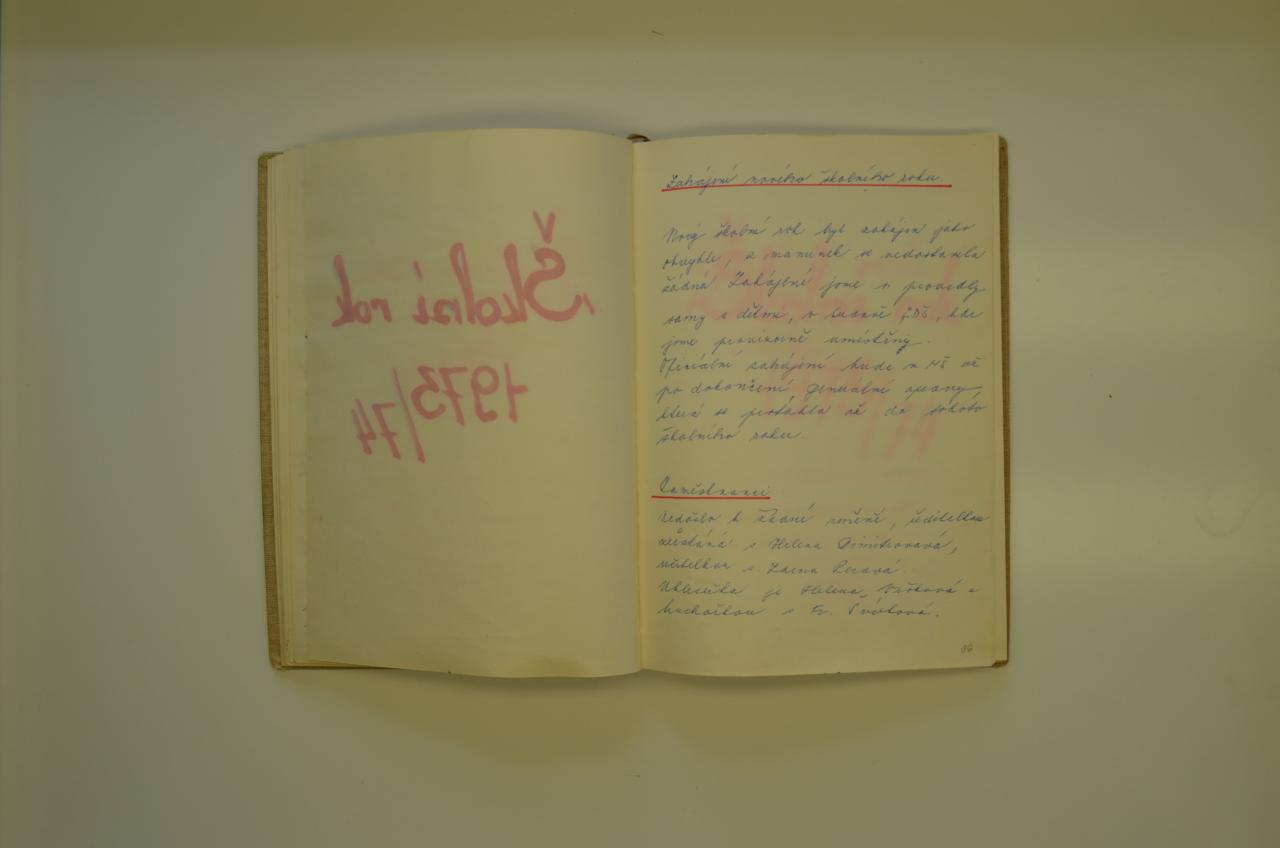 Školní rok
1973/74
Zahájení nového školního roku.
Nový školní rok byl zahájen jako
obvykle, z maminek se nedostavila
žádná. Zahájení jsme si provedly
samy s dětmi, v budově ZDŠ, kde
jsme provizorně umístěny.
Oficiální zahájení bude v MŠ až
po dokončení generální opravy,
která se protáhla až do tohoto
školního roku.
Zaměstnanci
Nedošlo k žádné změně, ředitelkou
zůstává s. Helena Dimitrovová,
učitelkou s. Zdena
Uklízečka je Helena a
kuchařkou s. Fr.
86